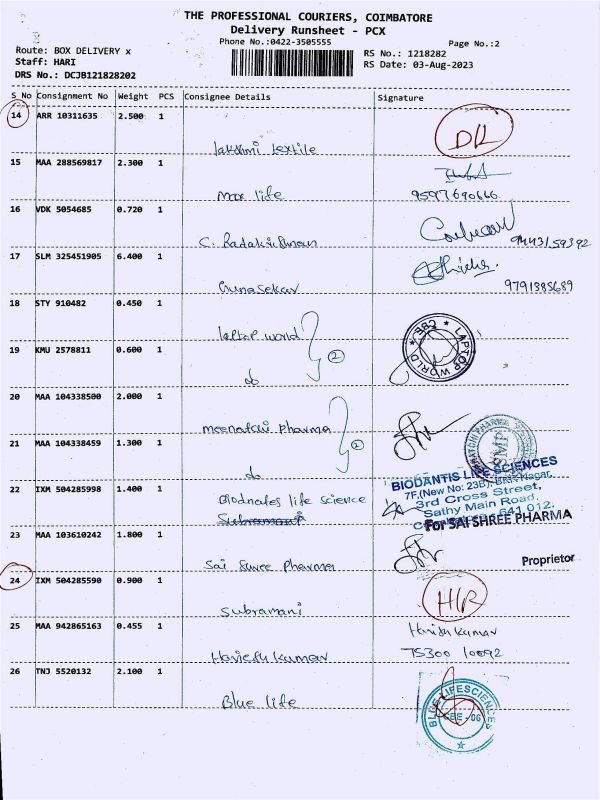 THE PROFESSIONAL COURIERS, COIMBATORE
Delivery Runsheet - PCX
Phone No.:0422-3505555
Page No.:2
Route: BOX DELIVERY x
RS No.: 1218282
Staff: HARI
RS Date: 03-Aug-2023
DRS No.: DCJB121828202
S No Consignment No Weight PCS Consignee Details Signature
14 ARR 10311635 2.500 1
lakshmi textile DL
15 MAA 288569817 2.300 1
max life 9597690666
16 VDK 5054685 0.720 1
C. Radakrishnan 9443159392
17 SLM 325451905 6.400 1
Gunasekar 9791385689
18 STY 910482 0.450 1
laptop world
CBE ★ LAPTOP WORLD ★
19 KMU 2578811 0.600 1
do 2
20 MAA 104338500 2.000 1
meenatchi pharma
21 MAA 104338459 1.300 1
do 2
22 IXM 504285998 1.400 1
Biodnates life science
Subramani
BIODANTIS LIFE SCIENCES
7F,(New No: 23B), Nagar,
3rd Cross Street,
Sathy Main Road,
641 012.
For SAI SHREE PHARMA
23 MAA 103610242 1.800 1
Sai Suree Pharma
Proprietor
24 IXM 504285590 0.900 1
Subramani H/R
25 MAA 942865163 0.455 1
Harish kumar
Harish kumar
75300 10092
26 TNJ 5520132 2.100 1
Blue life
BLUE LIFESCIENCES
CBE - 06